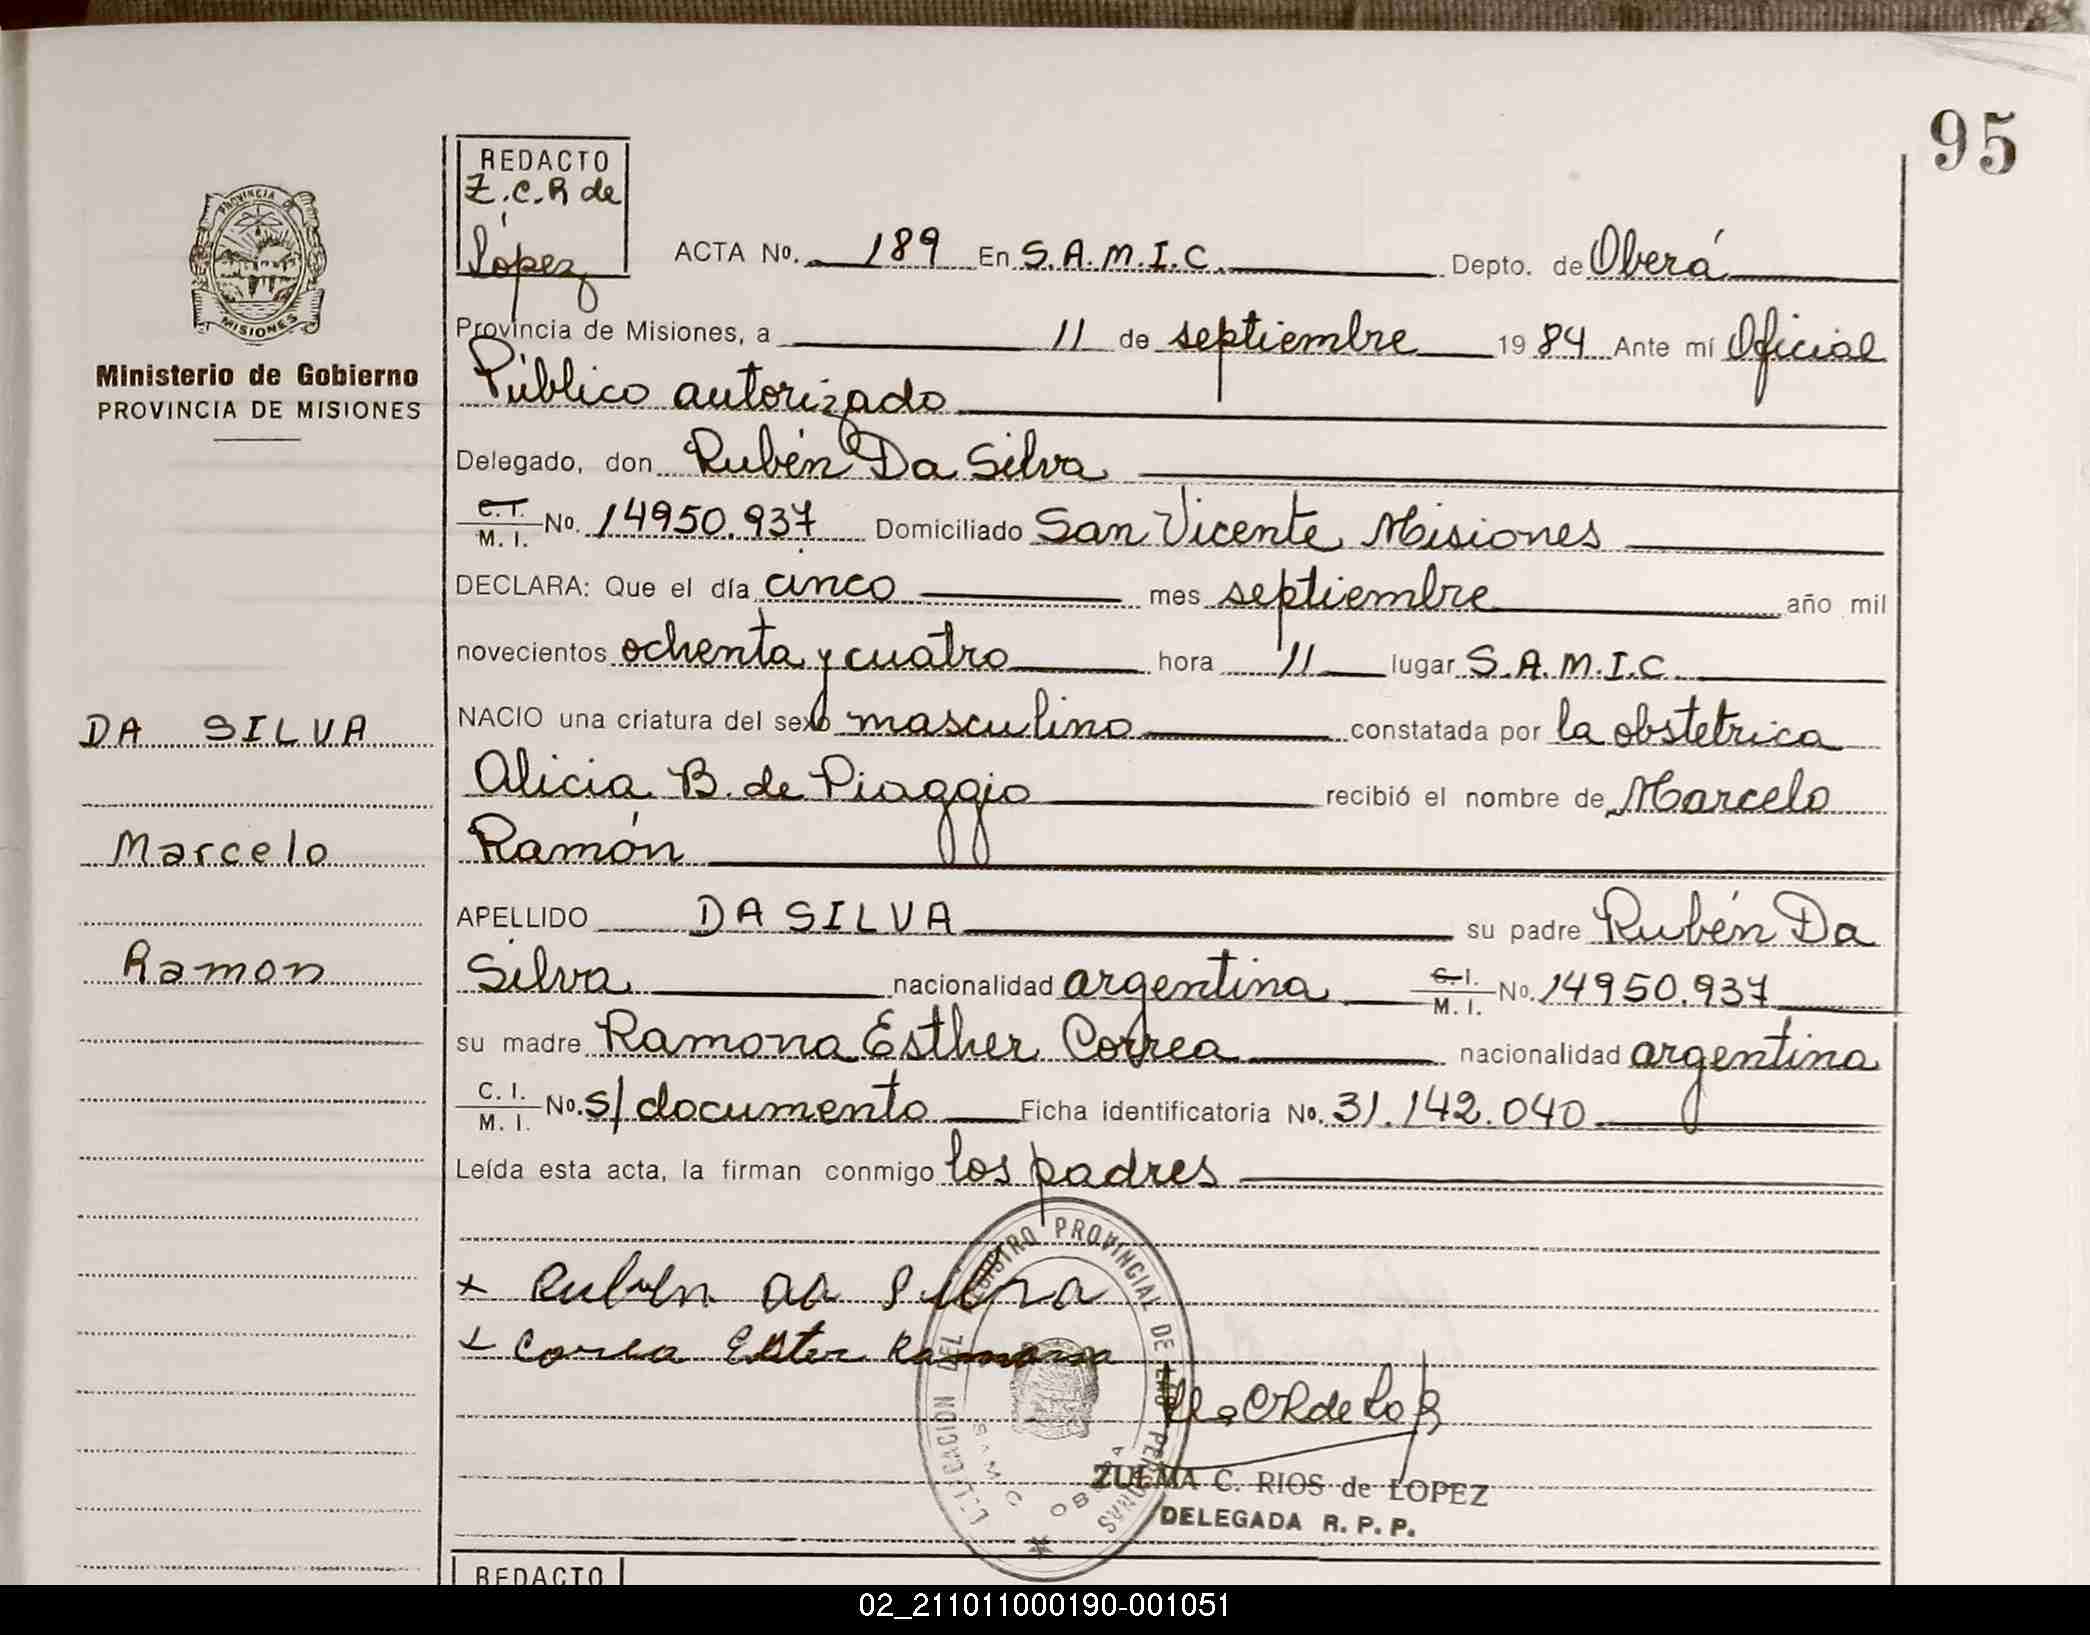 95
REDACTO
Z.C.R de
López
ACTA No. 189 En S.A.M.I.C. Depto. de Oberá
PROVINCIA DE
MISIONES
Provincia de Misiones, a 11 de septiembre 1984 Ante mí Oficial
Ministerio de Gobierno
PROVINCIA DE MISIONES
Público autorizado
Delegado, don Rubén Da Silva
C.I. M.I. No. 14950.937 Domiciliado San Vicente Misiones
DECLARA: Que el día cinco mes septiembre año mil
novecientos ochenta y cuatro hora 11 lugar S.A.M.I.C.
DA SILVA
NACIO una criatura del sexo masculino constatada por la obstetrica
Alicia B. de Piaggio recibió el nombre de Marcelo
Marcelo
Ramón
APELLIDO DA SILVA su padre Rubén Da
Ramon
Silva nacionalidad argentina C.I. M.I. No. 14950.937
su madre Ramona Esther Correa nacionalidad argentina
C.I. M.I. No. s/documento Ficha identificatoria No. 31.142.040
Leída esta acta, la firman conmigo los padres
DELEGACION DEL REGISTRO PROVINCIAL DE LAS PERSONAS
SAMIC OBERA
x Rubén da Silva
x Correa Ester Ramona
ZULMA C. RIOS de LOPEZ
DELEGADA R. P. P.
REDACTO
02_211011000190-001051